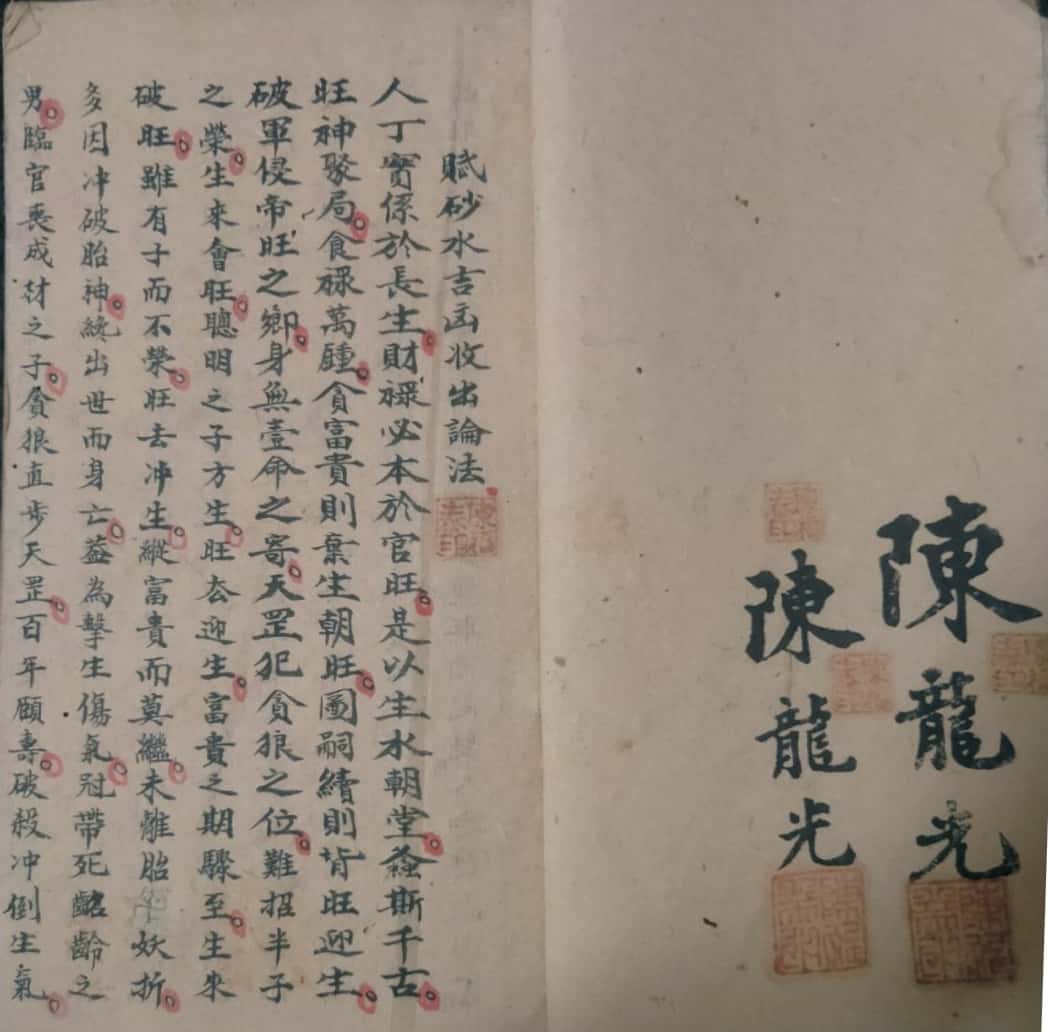 陳龍光
陳龍光
賦砂水吉凶收出論法
人丁實係於長生財祿必本於官旺是以生水朝堂螽斯千古
旺神聚局食祿萬鍾貪富貴則棄生朝旺圖嗣續則背旺迎生
破軍侵帝旺之鄉身無壹命之寄天罡犯貪狼之位難招半子
之榮生來會旺聰明之子方生旺去迎生富貴之期驟至生來
破旺雖有子而不榮旺去冲生縱富貴而莫繼未離胎而妖折
多因冲破胎神纔出世而身亡蓋為擊生傷氣冠帶死齠齡之
男臨官喪成材之子貪狼直步天罡百年顧壽破殺冲倒生氣